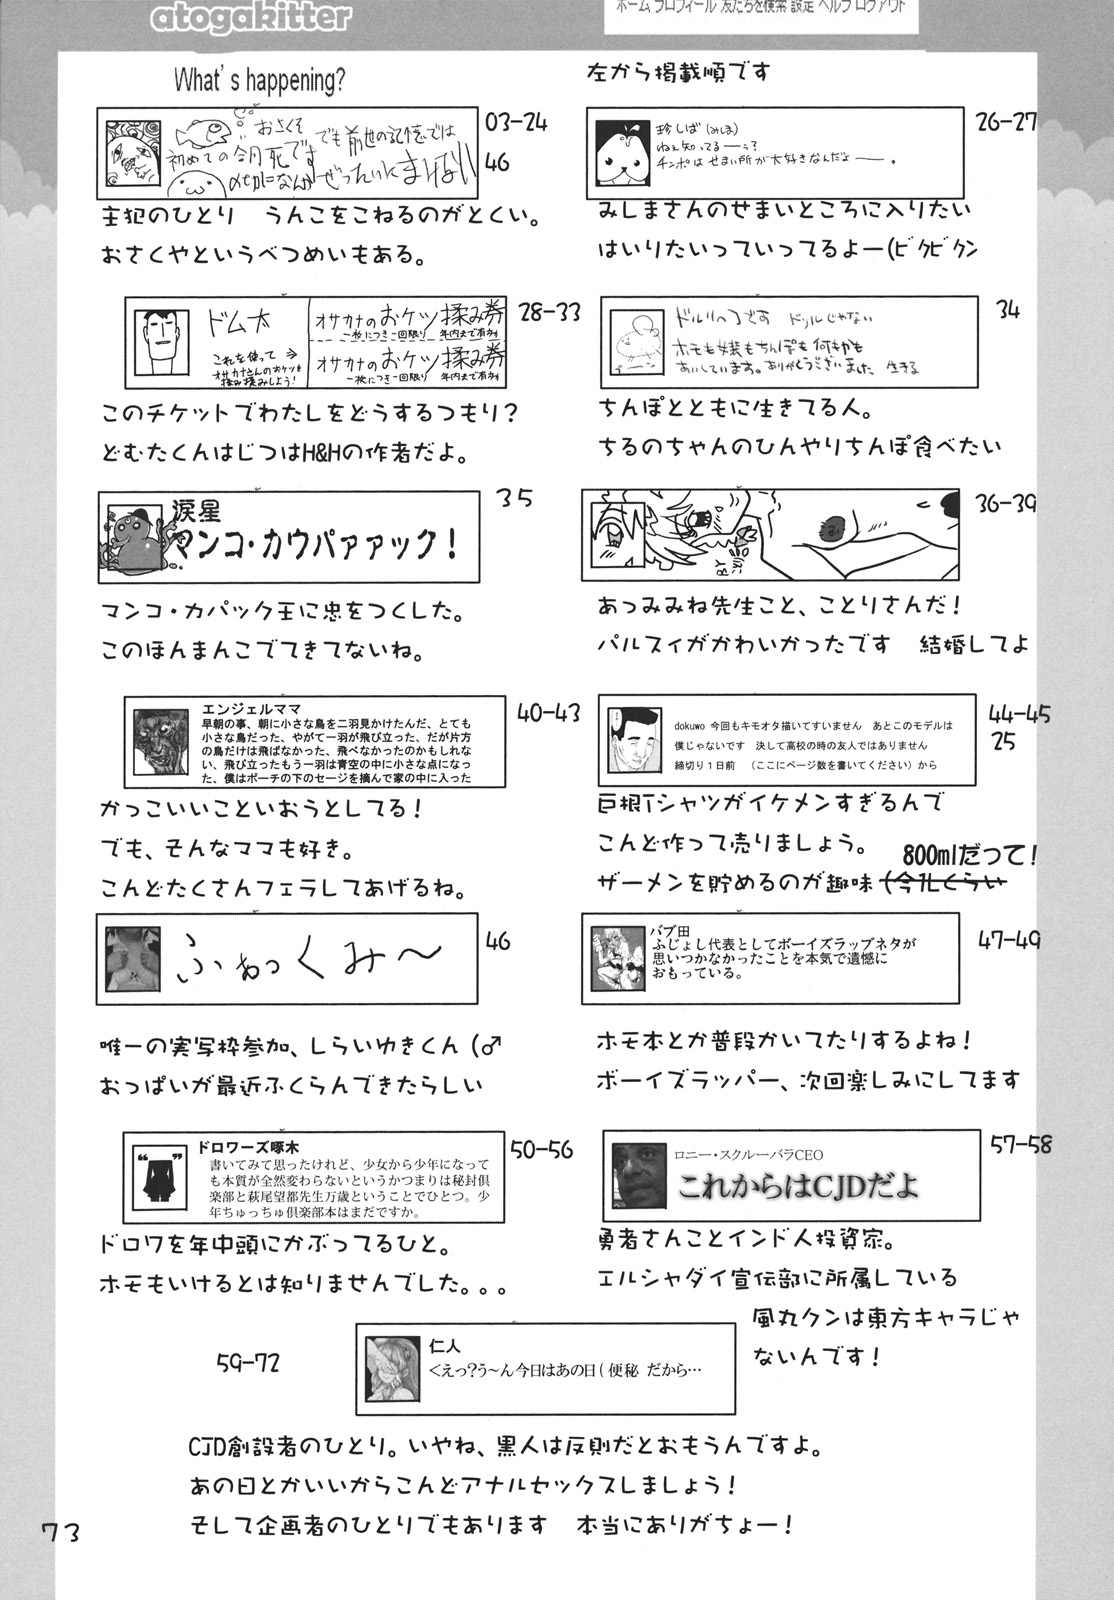 atogakitter
ホーム プロフィール 友だちを検索 設定 ヘルプ ログアウト
What's happening?
左から掲載順です
おさくそ
でも前世の記憶では
初めての今月死です
ぜったいにまけない
03-24
46
主犯のひとり うんこをこねるのがとくい。
おさくやというべつめいもある。
珍しば(みしま)
ねぇ知ってるーぅ?
チンポはせまい所が大好きなんだよ――。
26-27
みしまさんのせまいところに入りたい
はいりたいっていってるよー(ビクビクン
ドム太
これを使って⇒
オサカナさんのおケツを
揉み揉みしよう!
オサカナのおケツ揉み券
一枚につき一回限り 年内まで有効
オサカナのおケツ揉み券
一枚につき一回限り 年内まで有効
28-33
このチケットでわたしをどうするつもり?
どむたくんはじつはH&Hの作者だよ。
ドリルじゃない
ホモも嫁もちんぽも何もかも
あいしています。ありがとうございました 生きる
34
ちんぽとともに生きてる人。
ちるのちゃんのひんやりちんぽ食べたい
涙星
マンコ・カウパァァック!
35
マンコ・カパック王に忠をつくした。
このほんまんこでてきてないね。
36-39
あつみみね先生こと、ことりさんだ!
パルスィがかわいかったです 結婚してよ
エンジェルママ
早朝の事、朝に小さな鳥を二羽見かけたんだ、とても
小さな鳥だった、やがて一羽が飛び立った、だが片方
の鳥だけは飛ばなかった、飛べなかったのかもしれな
い、飛び立ったもう一羽は青空の中に小さな点になっ
た、僕はポーチの下のセージを摘んで家の中に入った
40-43
かっこいいこといおうとしてる!
でも、そんなママも好き。
こんどたくさんフェラしてあげるね。
dokuwo 今回もキモオタ描いてすいません あとこのモデルは
僕じゃないです 決して高校の時の友人ではありません
締切り1日前 (ここにページ数を書いてください)から
44-45
25
巨根Tシャツがイケメンすぎるんで
こんど作って売りましょう。
800mlだって!
ザーメンを貯めるのが趣味
ふぁっくみ～
46
唯一の実写枠参加、しらいゆきくん(♂
おっぱいが最近ふくらんできたらしい
バブ田
ふじょし代表としてボーイズラップネタが
思いつかなかったことを本気で遺憾に
おもっている。
47-49
ホモ本とか普段かいてたりするよね!
ボーイズラッパー、次回楽しみにしてます
ドロワーズ啄木
書いてみて思ったけれど、少女から少年になって
も本質が全然変わらないというかつまりは秘封倶
楽部と萩尾望都先生万歳ということでひとつ。少
年ちゅっちゅ倶楽部本はまだですか。
50-56
ドロワを年中頭にかぶってるひと。
ホモもいけるとは知りませんでした。。。
ロニー・スクルーバラCEO
これからはCJDだよ
57-58
勇者さんことインド人投資家。
エルシャダイ宣伝部に所属している
風丸クンは東方キャラじゃ
ないんです!
59-72
仁人
<えっ?う～ん今日はあの日(便秘 だから…
CJD創設者のひとり。いやね、黒人は反則だとおもうんですよ。
あの日とかいいからこんどアナルセックスしましょう!
そして企画者のひとりでもあります 本当にありがちょー!
73